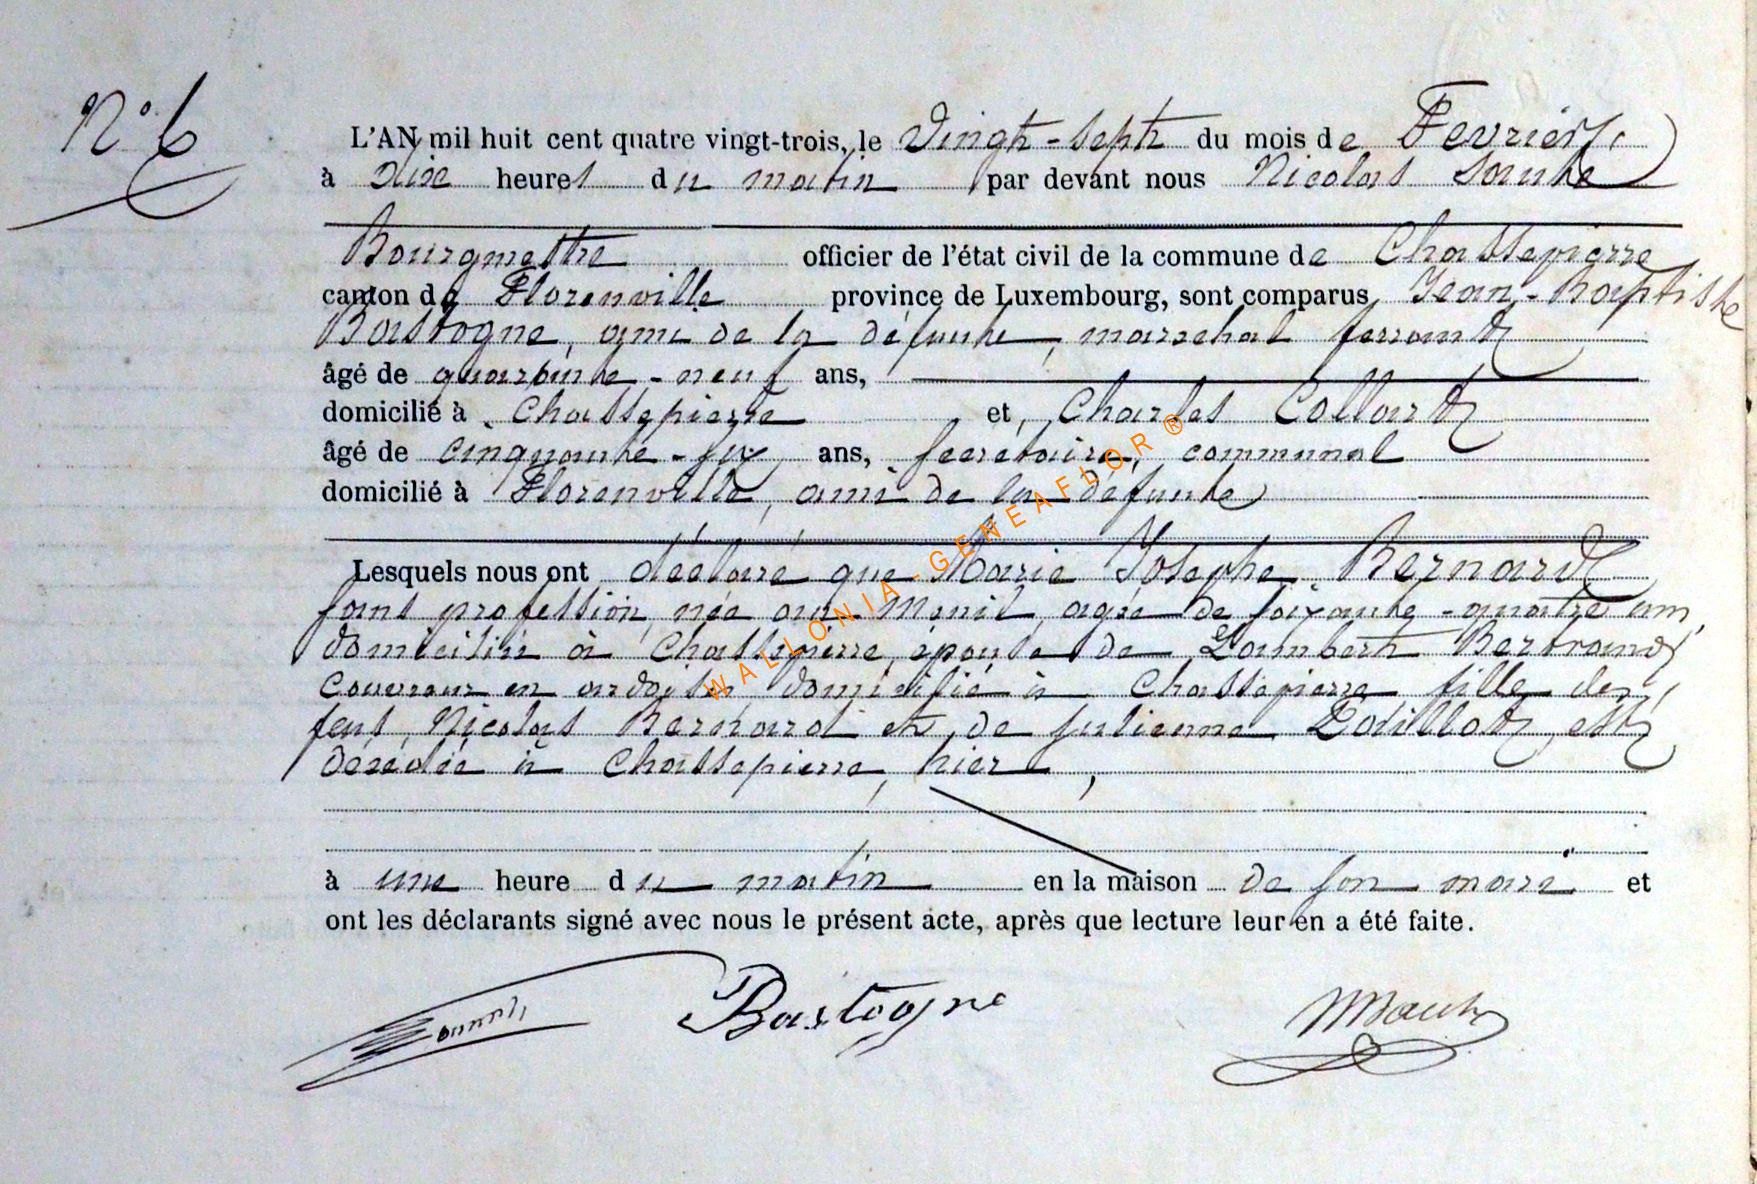 N° 6
L'AN mil huit cent quatre vingt-trois, le Vingt-sept du mois de Fevrier,
à dix heures du matin par devant nous Nicolas
Bourgmestre officier de l'état civil de la commune de Chassepierre
canton de Florenville province de Luxembourg, sont comparus Jean-Baptiste
Bastogne, ami de la défunte, marechal ferrant
âgé de quarante-neuf ans,
domicilié à Chassepierre et, Charles Collard
âgé de cinquante-six ans, secretaire, communal
domicilié à Florenville, ami de la défunte
Lesquels nous ont déclaré que Marie Josephe Bernard
sans profession, née au Menil, agée de soixante-quatre ans,
domiciliée à Chassepierre, épouse de Lambert Bertrand,
couvreur en ardoises domicilié à Chassepierre fille de
feus, Nicolas Bernard et de Julienne est
décédée à Chassepierre, hier,
à une heure du matin en la maison de son mari et
ont les déclarants signé avec nous le présent acte, après que lecture leur en a été faite.
Bastogne
WALLONIA-GENEAFLOR ®